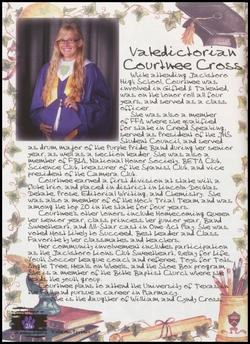 Valedictorian
Courtnee Cross
While attending Jacksboro
High School, Courtnee was
involved in Gifted & Talented,
was on the honor roll all four
years, and served as a class
officer.
She was also a member
of FFA, where she qualified
for state in Creed Speaking,
served as President of the JHS
Student Council, and served
as drum major of the Purple Pride Band during her senior
year, as well as a section leader. She was also a
member of FBLA, National Honor Society, BETA Club,
Science Club, treasurer of the Spanish Club, and vice
president of the Camera Club.
Courtnee earned a first division at state with a
flute trio, and placed in district in Lincoln-Douglas
Debate, Prose, Editorial Writing, and Chemistry. She
was also a member of the Mock Trial Team and was
among the top 20 in the state for four years.
Courtnee's other honors include Homecoming Queen
her senior year, class princess her junior year, Band
Sweetheart, and All-Star cast in One-Act Play. She was
voted Most Likely to Succeed, Best Leader and Class
Favorite by her classmates and teachers.
Her community involvement includes participation
as the Jacksboro Lions Club Sweetheart, Relay for Life,
Youth Soccer League coach and referee, Toys for Tots,
Angel Tree, Meals on Wheels, and the Shoe Box program.
She is a member of the Bible Baptist Church where she
leads the youth group.
Courtnee plans to attend the University of Texas
and pursue a career in Pharmacy.
She is the daughter of William and Cindy Cross.